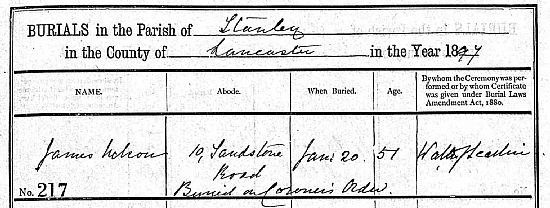 BURIALS in the Parish of Stanley
in the County of Lancaster in the Year 1897
NAME. Abode. When Buried. Age. By whom the Ceremony was performed or by whom Certificate was given under Burial Laws Amendment Act, 1880.
James Nelson 10, Sandstone Road Jan: 20. 51
Buried on Coroner's Order.
No. 217